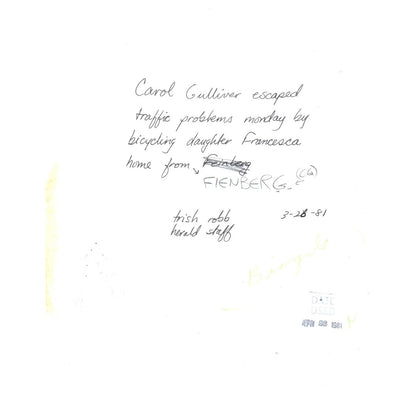 Carol Gulliver escaped
traffic problems monday by
bicycling daughter Francesca
home from Feinberg
FIENBERG.
trish robb 3-28-81
herald staff
Bicycle
DATE
USED